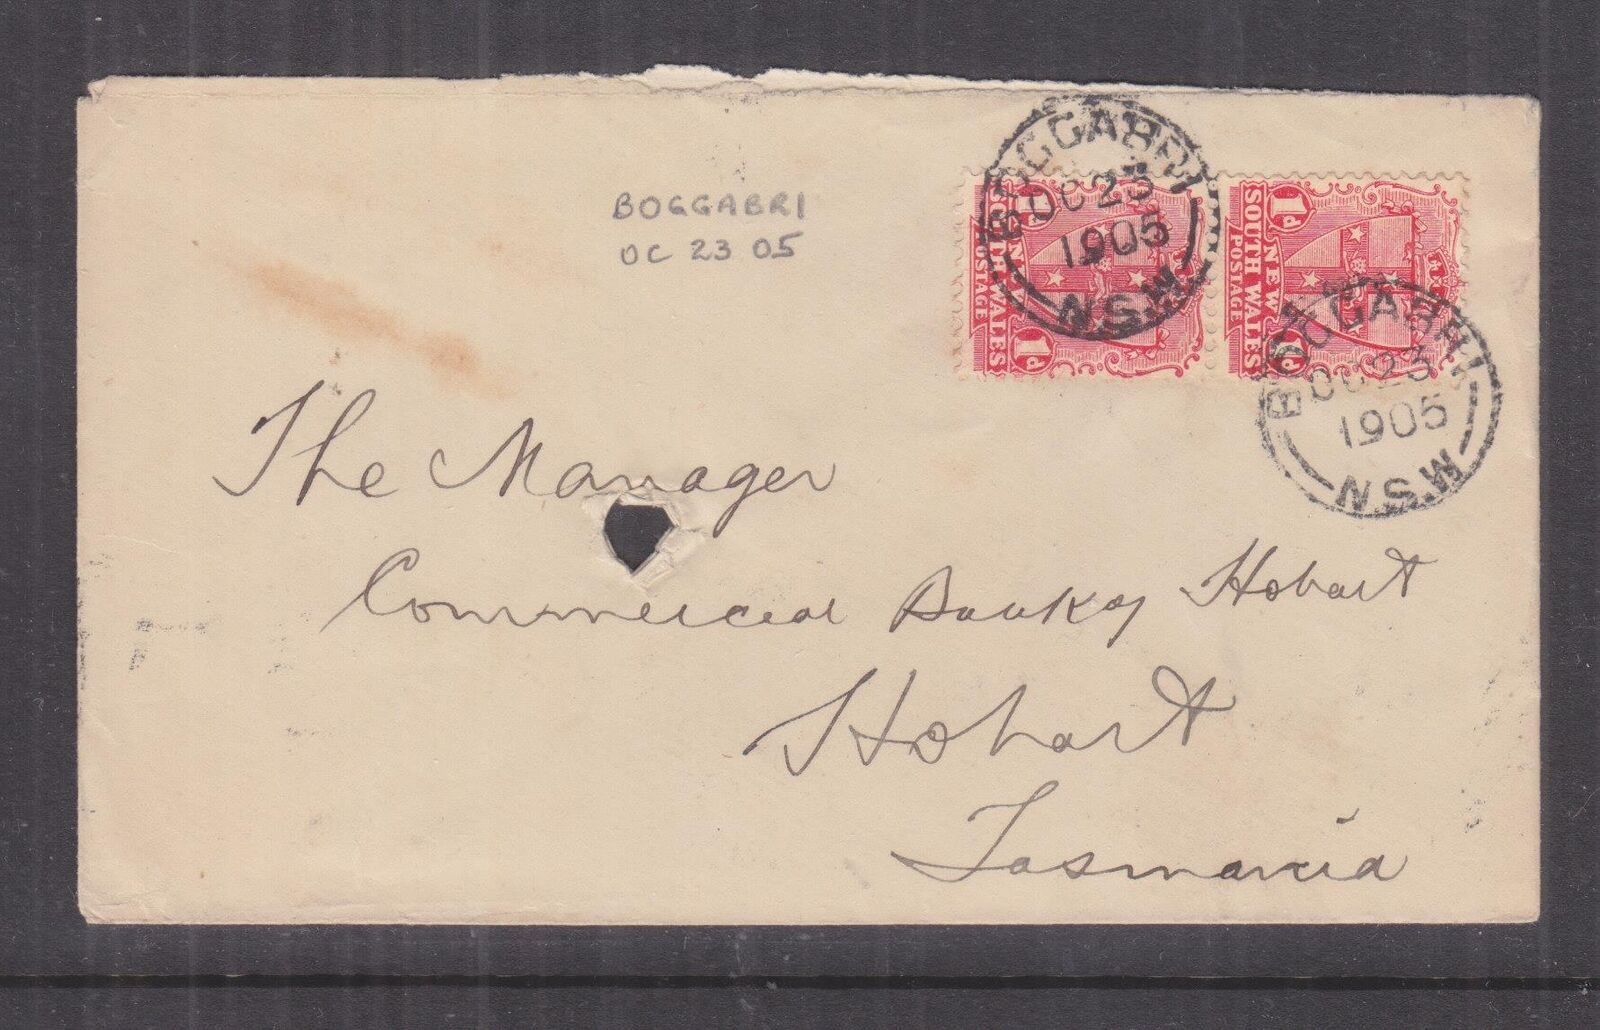 BOGGABRI
OC 23 05
BOGGABRI
OC 23
1905
N.S.W
1d
NEW
SOUTH WALES
POSTAGE
1d
1d
NEW
SOUTH WALES
POSTAGE
1d
BOGGABRI
OC 23
1905
N.S.W
The Manager
Commercial Bank of Hobart
Hobart
Tasmania